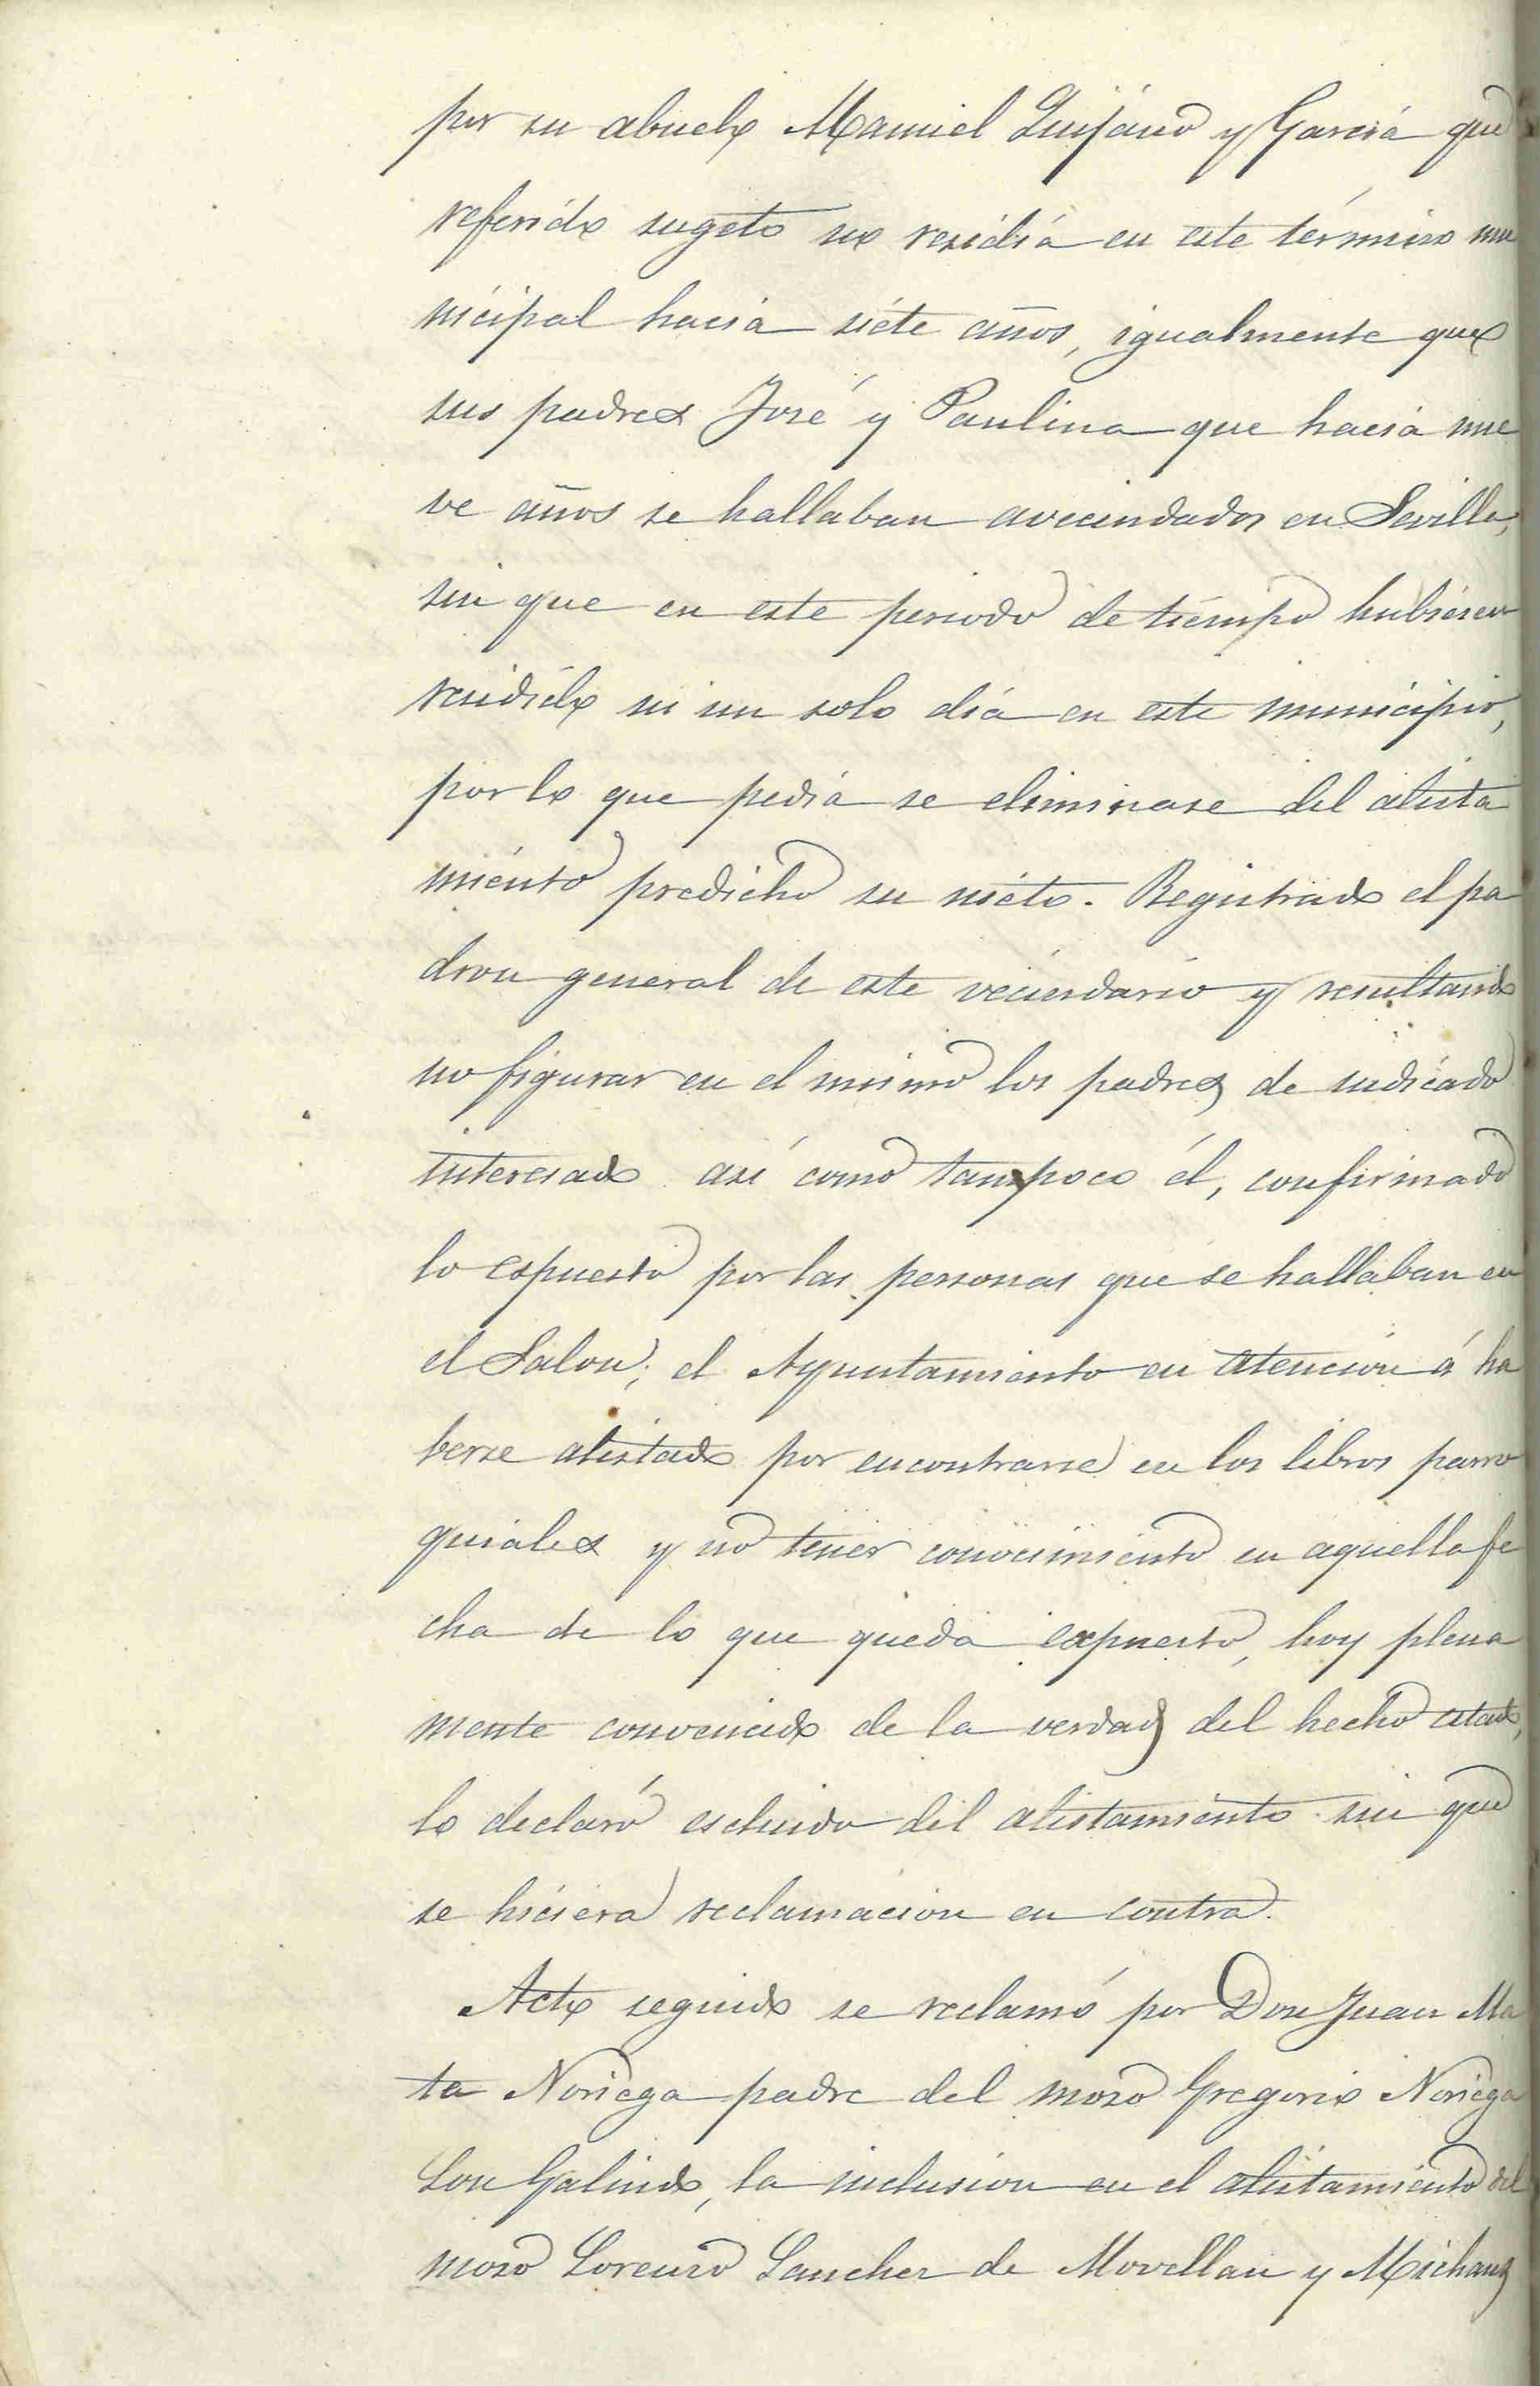 por su abuelo Manuel Quijano y García que
referido sugeto no residia en este término mu
nicipal hacia siete años, igualmente que
sus padres José y Paulina que hacia nue
ve años se hallaban avecindados en Sevilla,
sin que en este periodo de tiempo hubiesen
residido ni un solo dia en este municipio,
por lo que pedia se eliminase del alista
miento predicho su nieto. Registrado el pa
dron general de este vecindario y resultando
no figurar en el mismo los padres de indicado
interesado así como tampoco él, confirmado
lo espuesto por las personas que se hallaban en
el Salon; el Ayuntamiento en atencion á ha
berse alistado por encontrarse en los libros parro
quiales y no tener conocimiento en aquella fe
cha de lo que queda expuesto, hoy plena
mente convencido de la verdad del hecho citado,
lo declaró escluido del alistamiento sin que
se hiciera reclamacion en contra.
Acto seguido se reclamó por Don Juan Ma
ta Noriega padre del mozo Gregorio Noriega
Galindo, la inclusion en el alistamiento del
mozo Lorenzo Sanchez de Movellan y